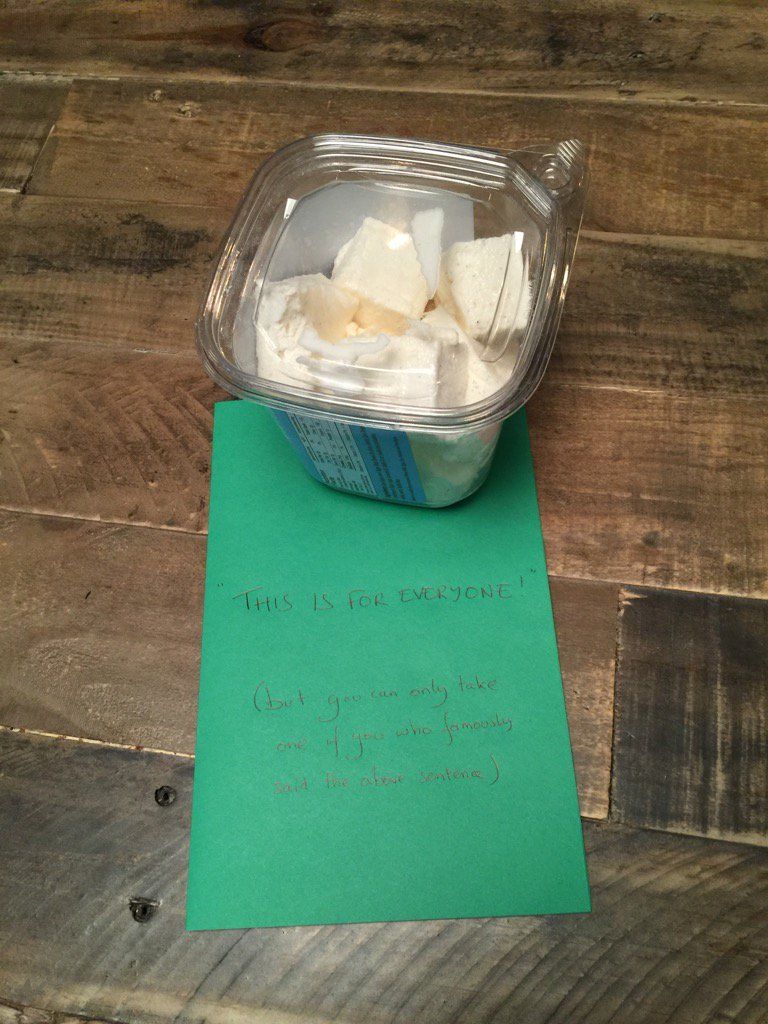 "THIS IS FOR EVERYONE!"
(but you can only take
one if you who famously
said the above sentence)